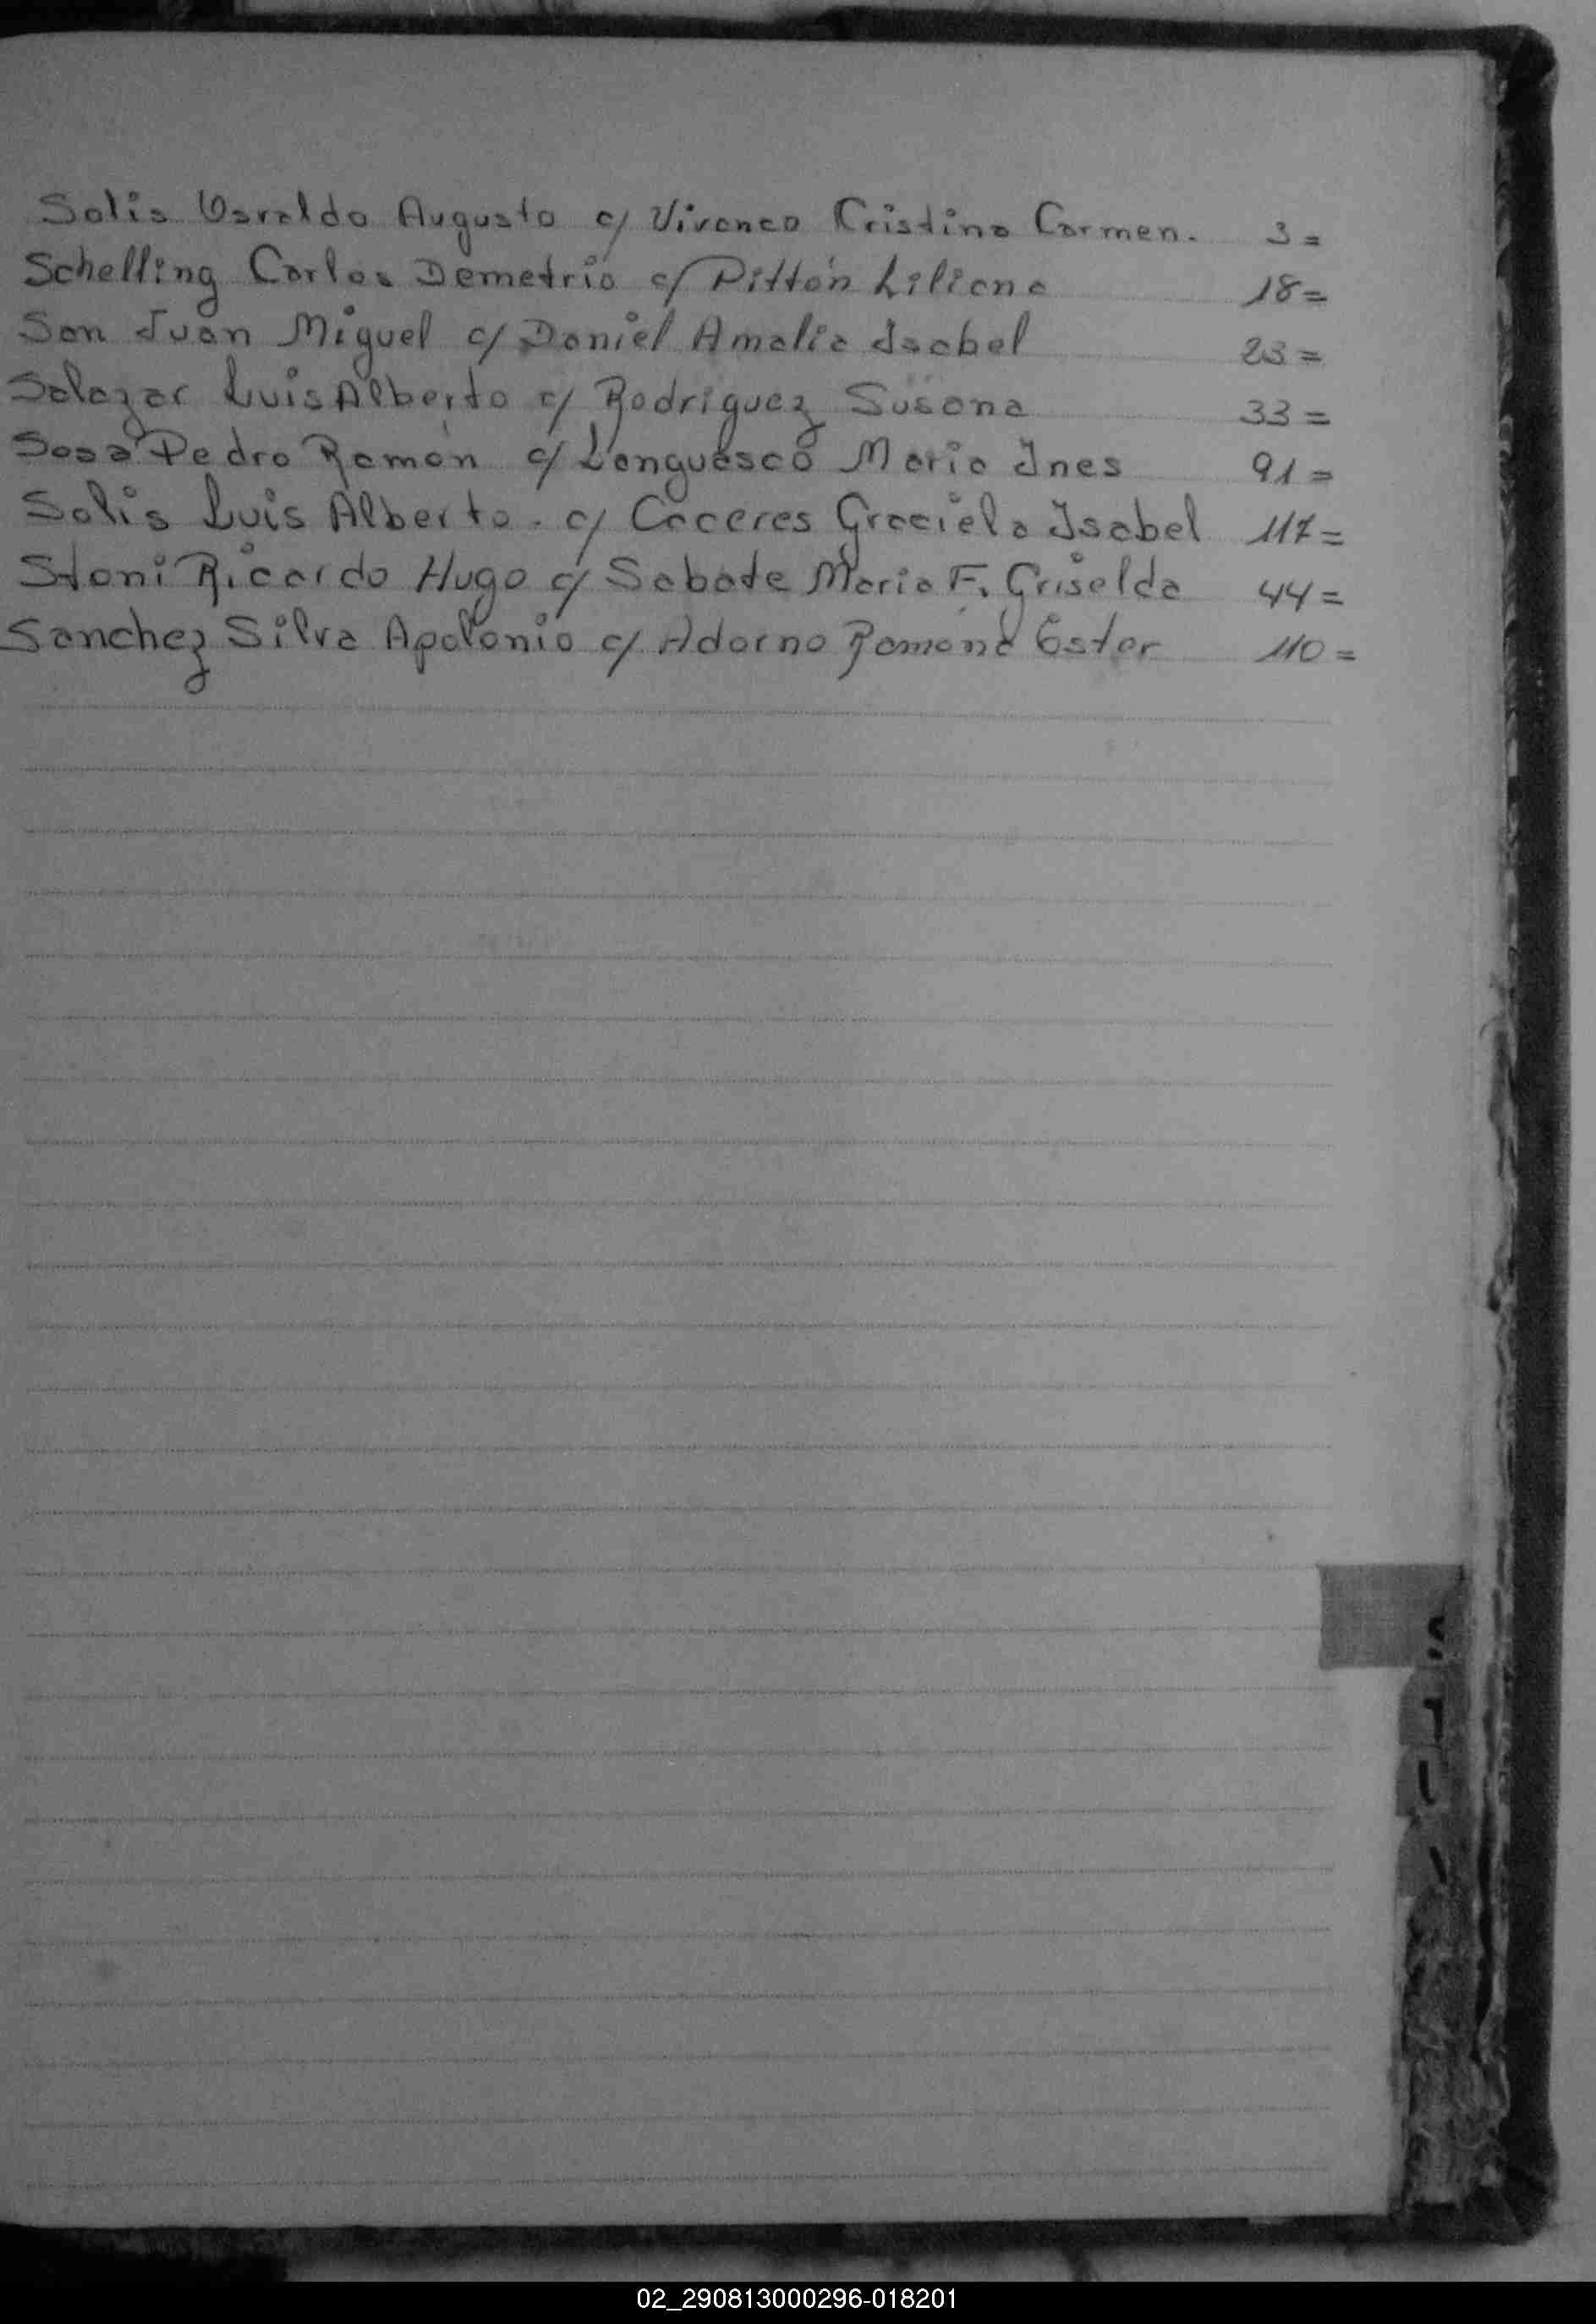 Solis Osvaldo Augusto c/ Vivanco Cristina Carmen. 3=
Schelling Carlos Demetrio c/ Pittón Liliana 18=
San Juan Miguel c/ Daniel Amalia Isabel 23=
Salazar Luis Alberto c/ Rodriguez Susana 33=
Sosa Pedro Ramón c/ Languasco Maria Ines 91=
Solis Luis Alberto. c/ Caceres Graciela Isabel 117=
Stani Ricardo Hugo c/ Sabate Maria F. Griselda 44=
Sanchez Silva Apolonio c/ Adorno Ramona Ester 110=
S
02_290813000296-018201